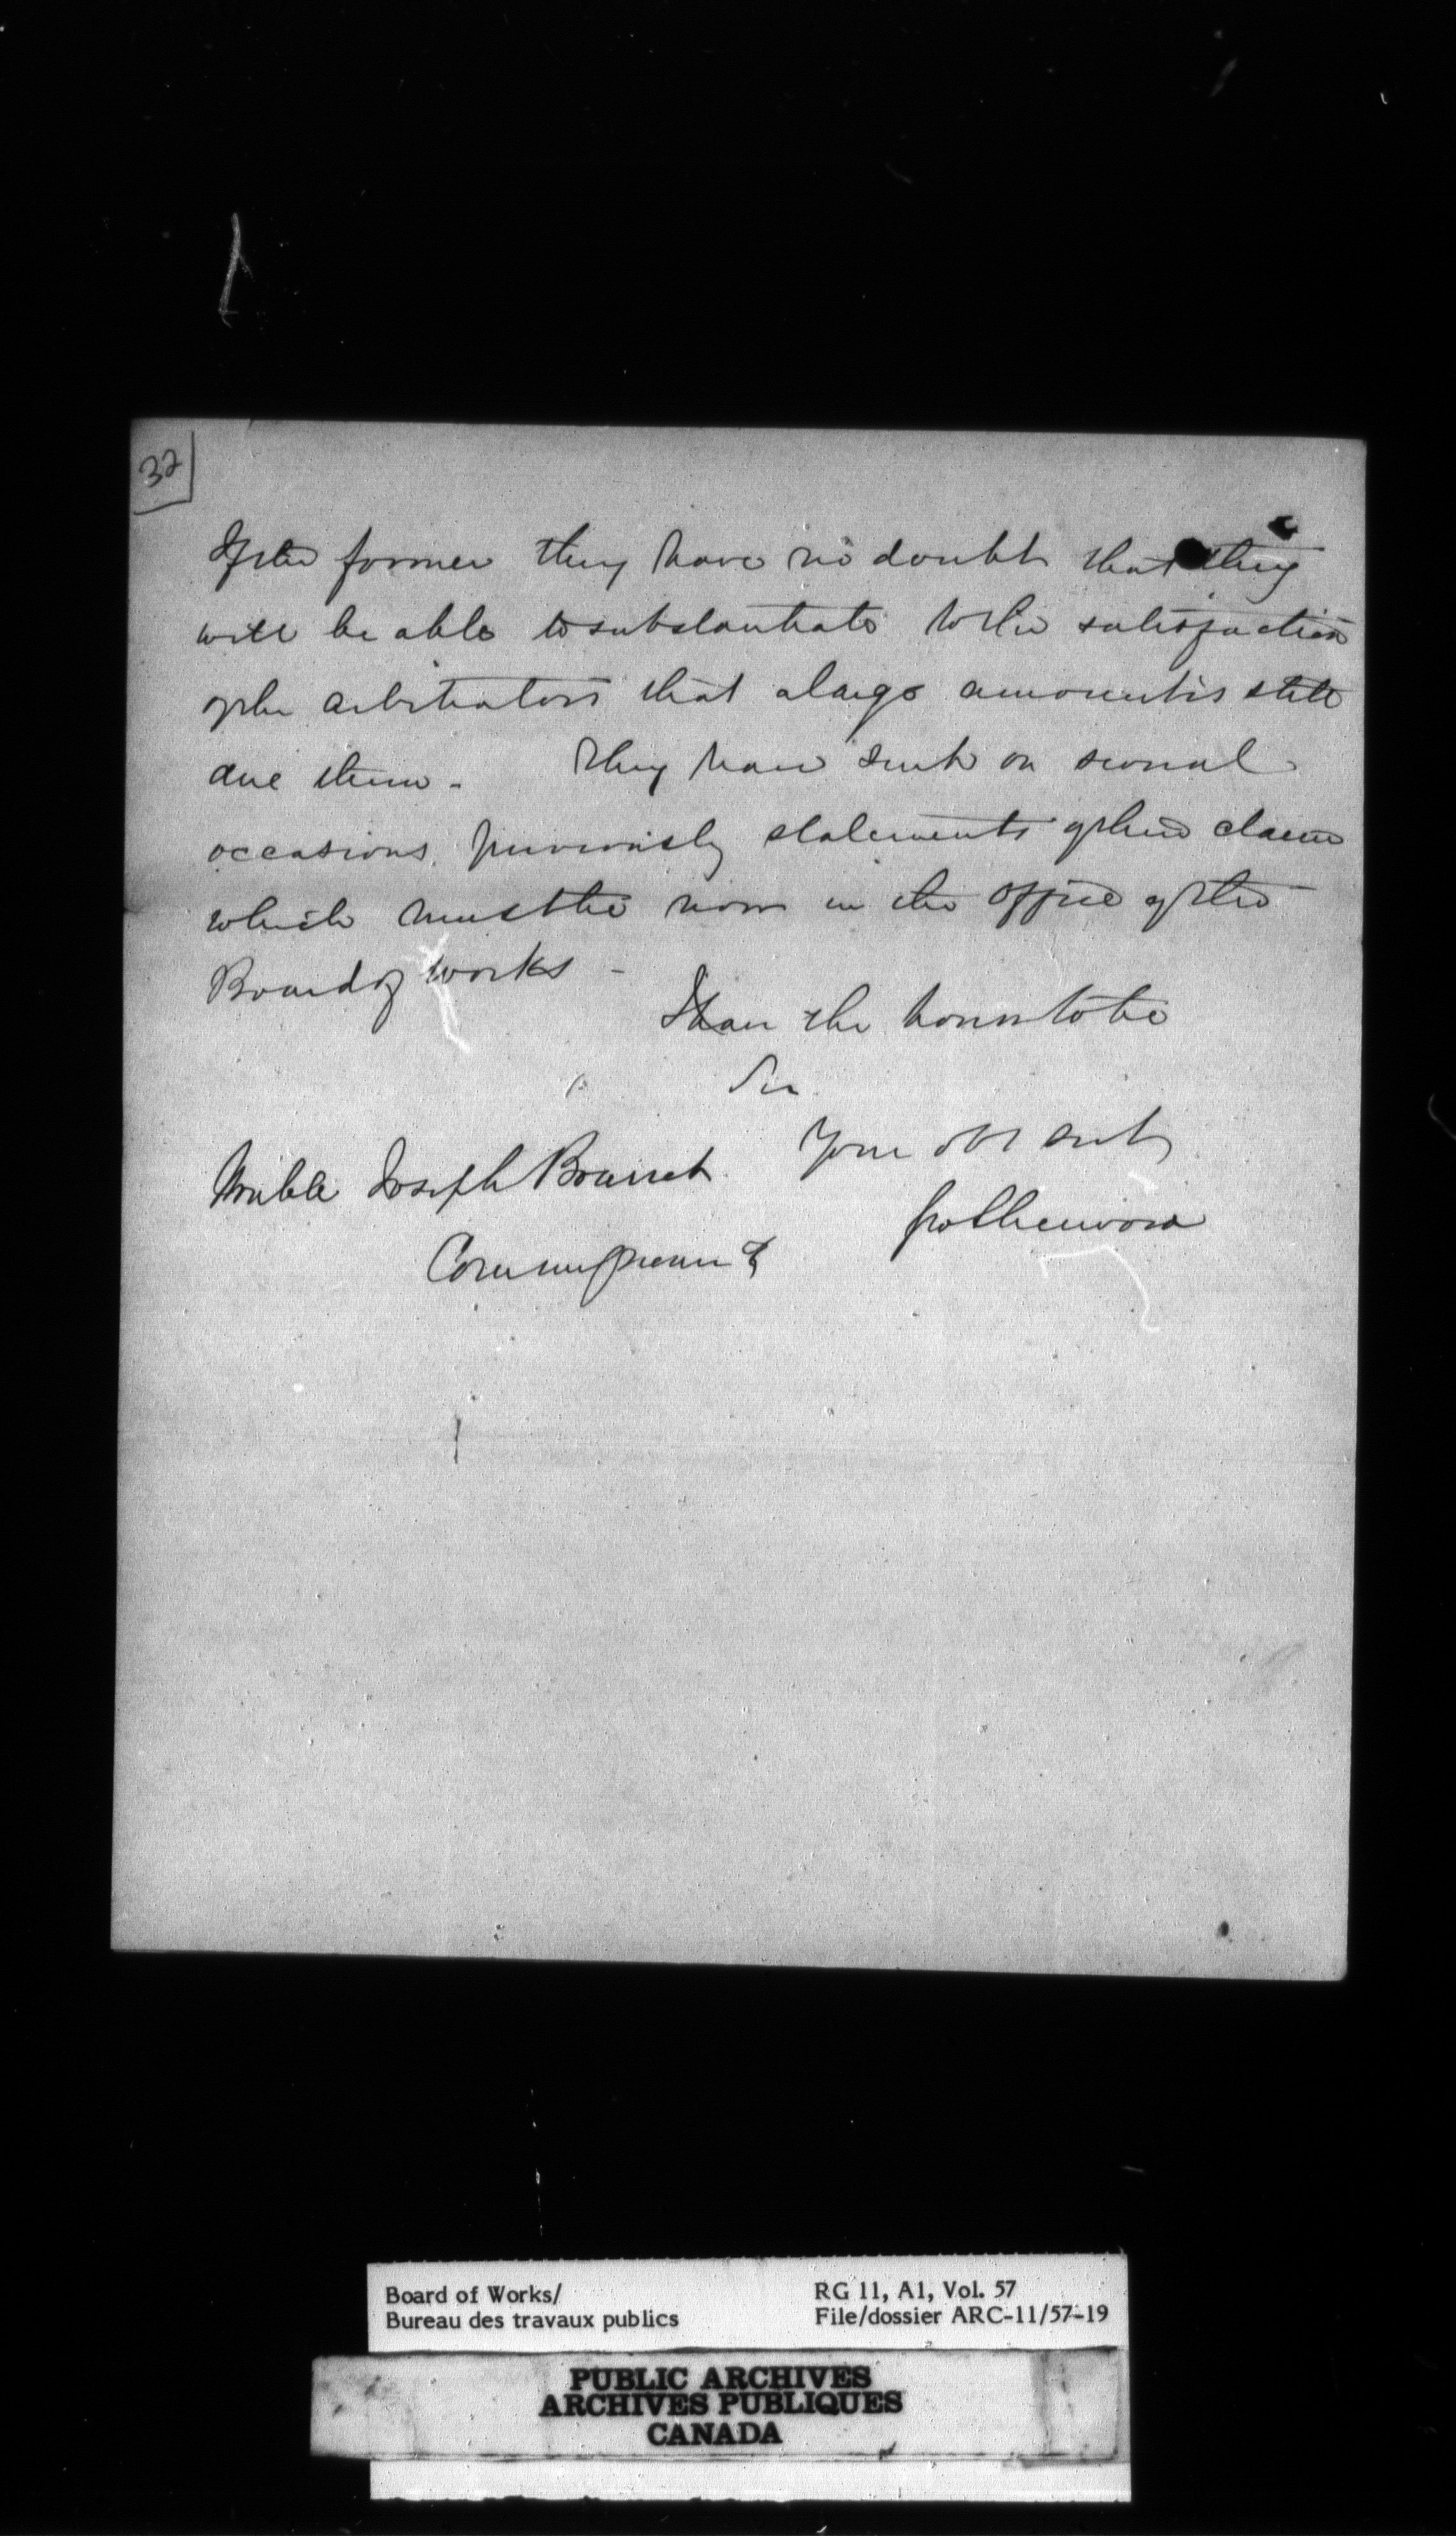 32
If the former they have no doubt that they
will be able to substantiate to the satisfaction
of the arbitrators that a large amount is still
due them - They have sent on several
occasions previously statements of their claim
which must be now in the office of the
Board of Works -
I have the honor to be
Sir
Your obt servt
Honble Joseph Bourret
Commissioner &
Board of Works/
Bureau des travaux publics
RG 11, A1, Vol. 57
File/dossier ARC-11/57-19
PUBLIC ARCHIVES
ARCHIVES PUBLIQUES
CANADA